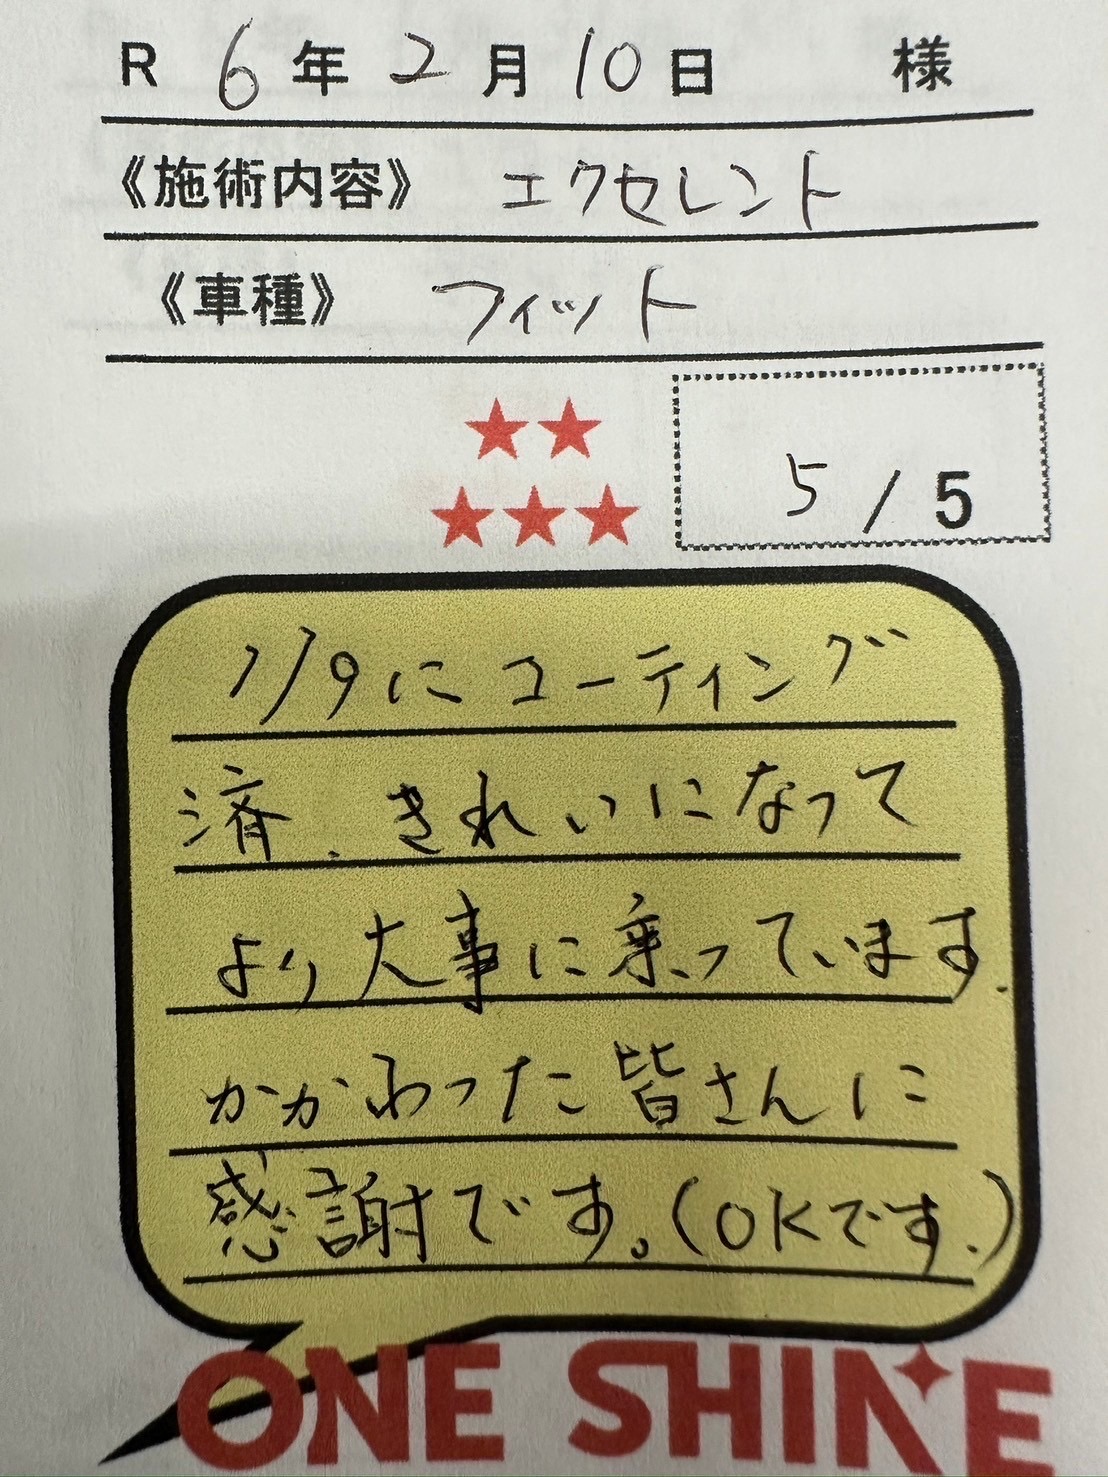 R 6年2月10日 様
《施術内容》 エクセレント
《車種》 フィット
★★
★★★
5/5
1/9にコーティング
済、きれいになって
より大事に乗っています.
かかわった皆さんに
感謝です。(OKです.)
ONE SHINE